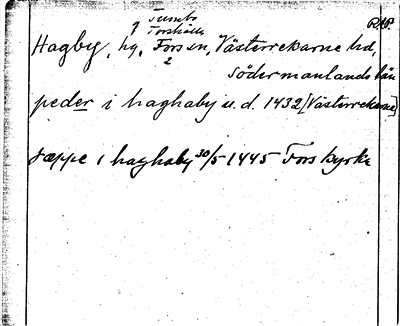 Tumbo
R.A.P.
Torshälla
Hagby, by, Fors sn, Västerrekarne hd,
2
Södermanlands län
peder i haghaby u.d. 1432 [Västerrekarne]
Jæppe i haghaby 30/5 1445 Fors kyrka